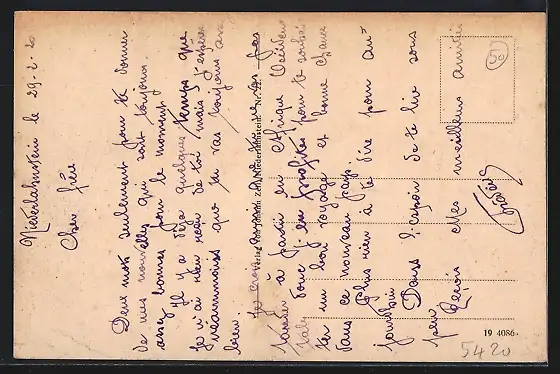 Niederlahnstein le 29-2-20
Cher frère
Deux mots seulement pour te donner
de mes nouvelles qui sont toujours
assez bonnes pour le moment.
Il y a déjà quelques temps que
je n'ai rien reçu de toi mais j'espère
néanmoins que tu vas toujours assez
bien Je crois que tu ne vas pas
tarder à partir en Afrique Occident
Donc j'en profite pour te souhai
ter un bon voyage et bonne chance
dans ce nouveau pays.
Plus rien à te dire pour au
jourd'hui Dans l'espoir de te lire sous
peu Reçois mes meilleurs amitiés
50
19 4086
5420